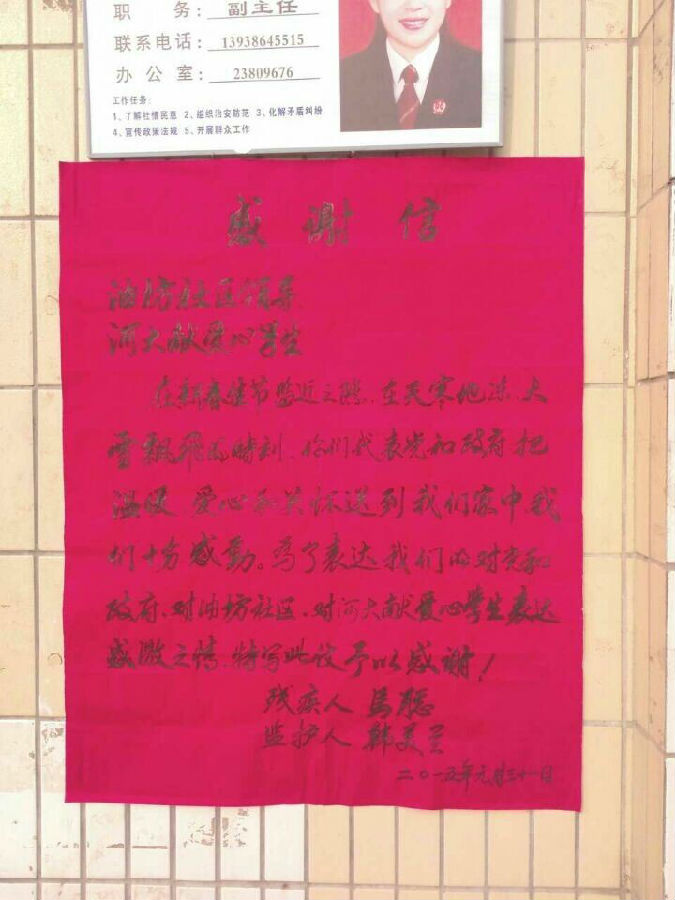 职 务：副主任
联系电话：13938645515
办 公 室：23809676
工作任务：
1、了解社情民意 2、组织治安防范 3、化解矛盾纠纷
4、宣传政策法规 5、开展群众工作
感谢信
油坊社区领导
河大献爱心学生
在新春佳节临近之际、在天寒地冻、大
雪飘飛的時刻、你们代表党和政府把
温暖 爱心和关怀送到我们家中我
们十分感動。为了表达我们的对党和
政府、对油坊社区、对河大献爱心學生表达
感激之情、特写此议予以感谢！
残疾人 马聪
监护人 韩美兰
二〇一五年元月三十一日